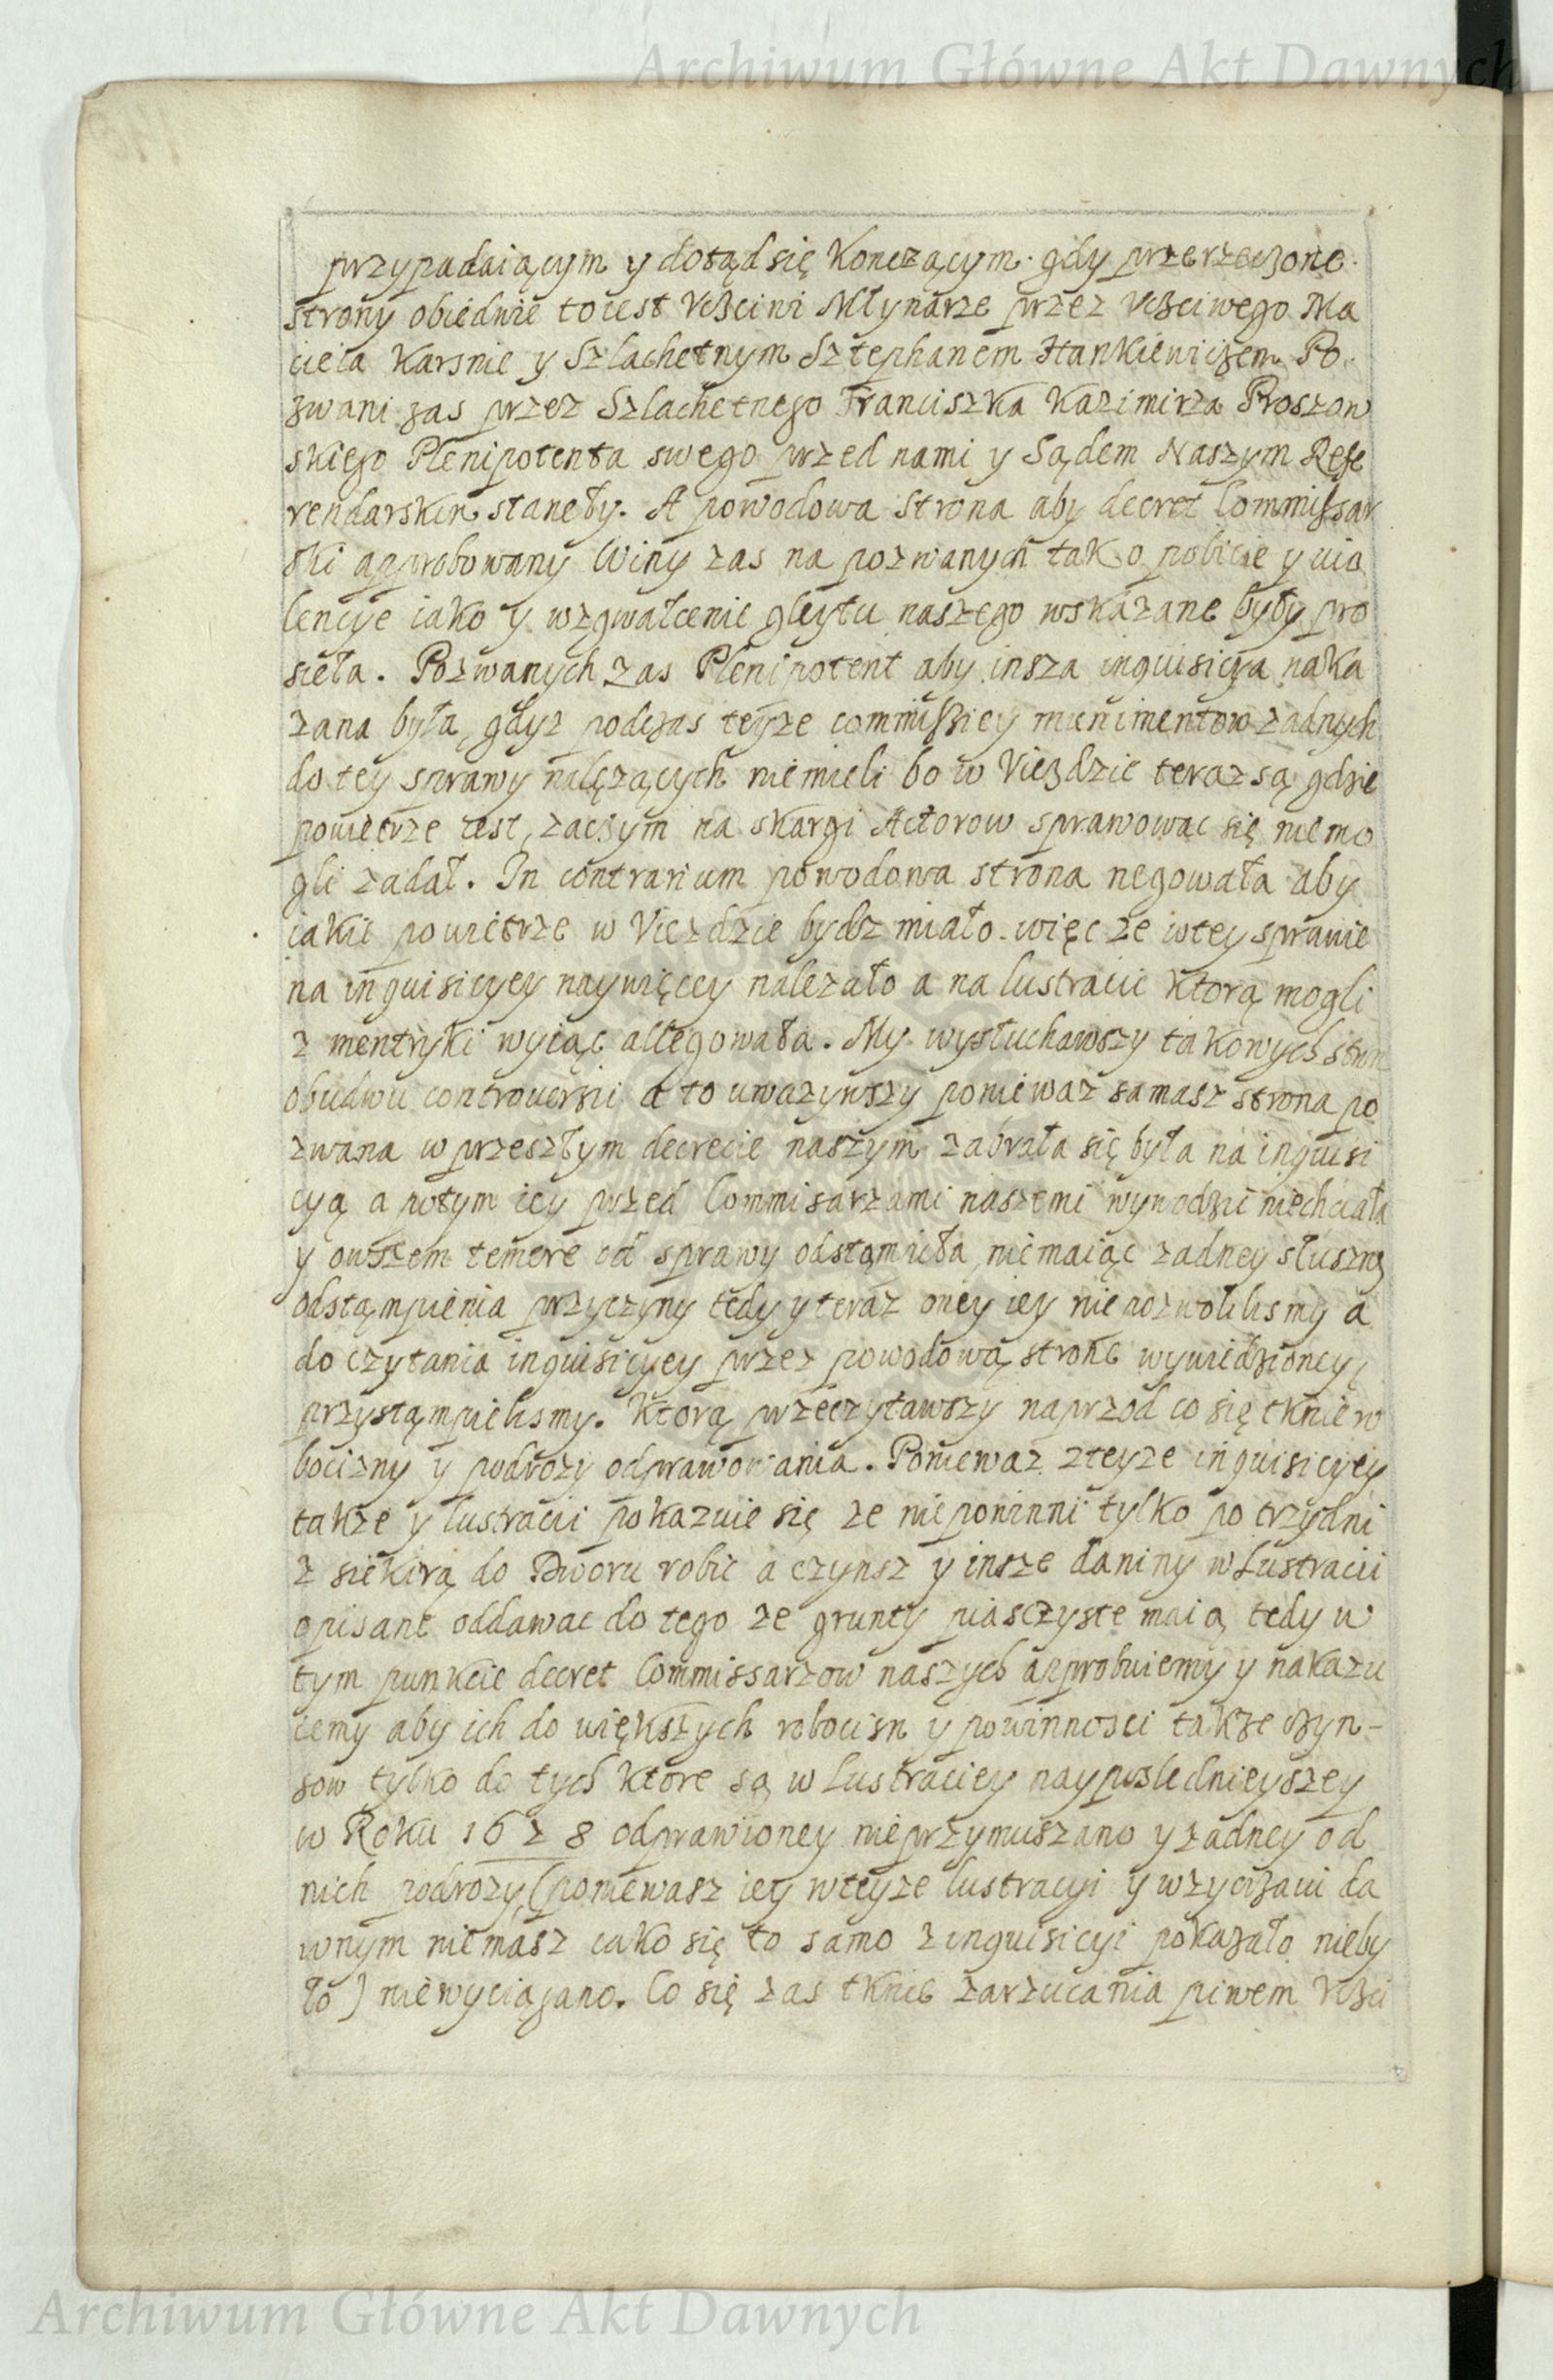 Archiwum Główne Akt Dawnych
przypadaiącym y dotąd się Konczącym. gdy przerzeczone.
strony obiedwie to iest Vczciwi Młynarze przez Vczciwego Ma
cieia Karsnie y Szlachetnym Sztephanem Hankiewiczem Po.
zwani zas przez Szlachetnego Franciszka Kazimirza Proszow
skiego Plenipotenta swego przed nami y Sądem Naszym Refe
rendarskim stanęły. A powodowa strona aby decret Commissar
ski approbowany Winy zas na pozwanych tak o pobicie y vio
lencye iako y wzgwałcenie gleytu naszego wskazane były pro
sieła. Pozwanych zas Plenipotent aby insza inquisicya naka
zana była, gdyz podczas teyze commissiey munimentow zadnych
do tey sprawy nalęzących nie mieli bo w Viezdzie teraz są gdzie
powietrze iest, zaczym na skargi Actorow sprawowac się niemo
gli zadał. In contrarium powodowa strona negowała aby
iakie powietrze w Viezdzie bydz miało. więc ze wtey sprawie
na inquisicyey naywięcey nalezało a na lustracii ktorą mogli
z mentryki wyiąc allegowała. My wysłuchawszy takowych stron
obudwu controversii a to uwazywszy poniewaz samasz strona po
zwana w przeszłym decrecie naszym zabrała się była na inquisi
cyą a potym iey przed Commisarzami naszemi wywodzic niechciała
y owszem temere od sprawy odstąmpiła, nie maiąc zadney słuszney
odstąmpienia przyczyny tedy y teraz oney iey nie pozwolilismy a
do czytania inquisicyey przez powodową stronę wywiedzioney,
przystąmpielismy. Ktorą przeczytawszy naprzod co się tknie ro
bocizny y podrozy odprawowania. Poniewaz zteyze inquisicyey
takze y lustracii pokazuie się ze nie powinni tylko po trzy dni
z siekirą do Dworu robic a czynsz y insze daniny w Lustracii
opisane oddawac do tego ze grunty piasczyste maią tedy w
tym punkcie decret Commissarzow naszych approbuiemy y nakazu
iemy aby ich do większych robocizn y powinnosci takze czyn-
szow tylko do tych ktore są w Lustraciey nayposlednieyszey
w Roku 1628 odprawioney nieprzymuszano y zadney od
nich podrozy, (poniewasz iey wteyze lustracyi y w zyczaiu da
wnym niemasz iako się to samo z inquisicyi pokazało nieby
ło) niewyciągano. Co się zas tknie zarzucania piwem Vczci
Archiwum Główne Akt Dawnych